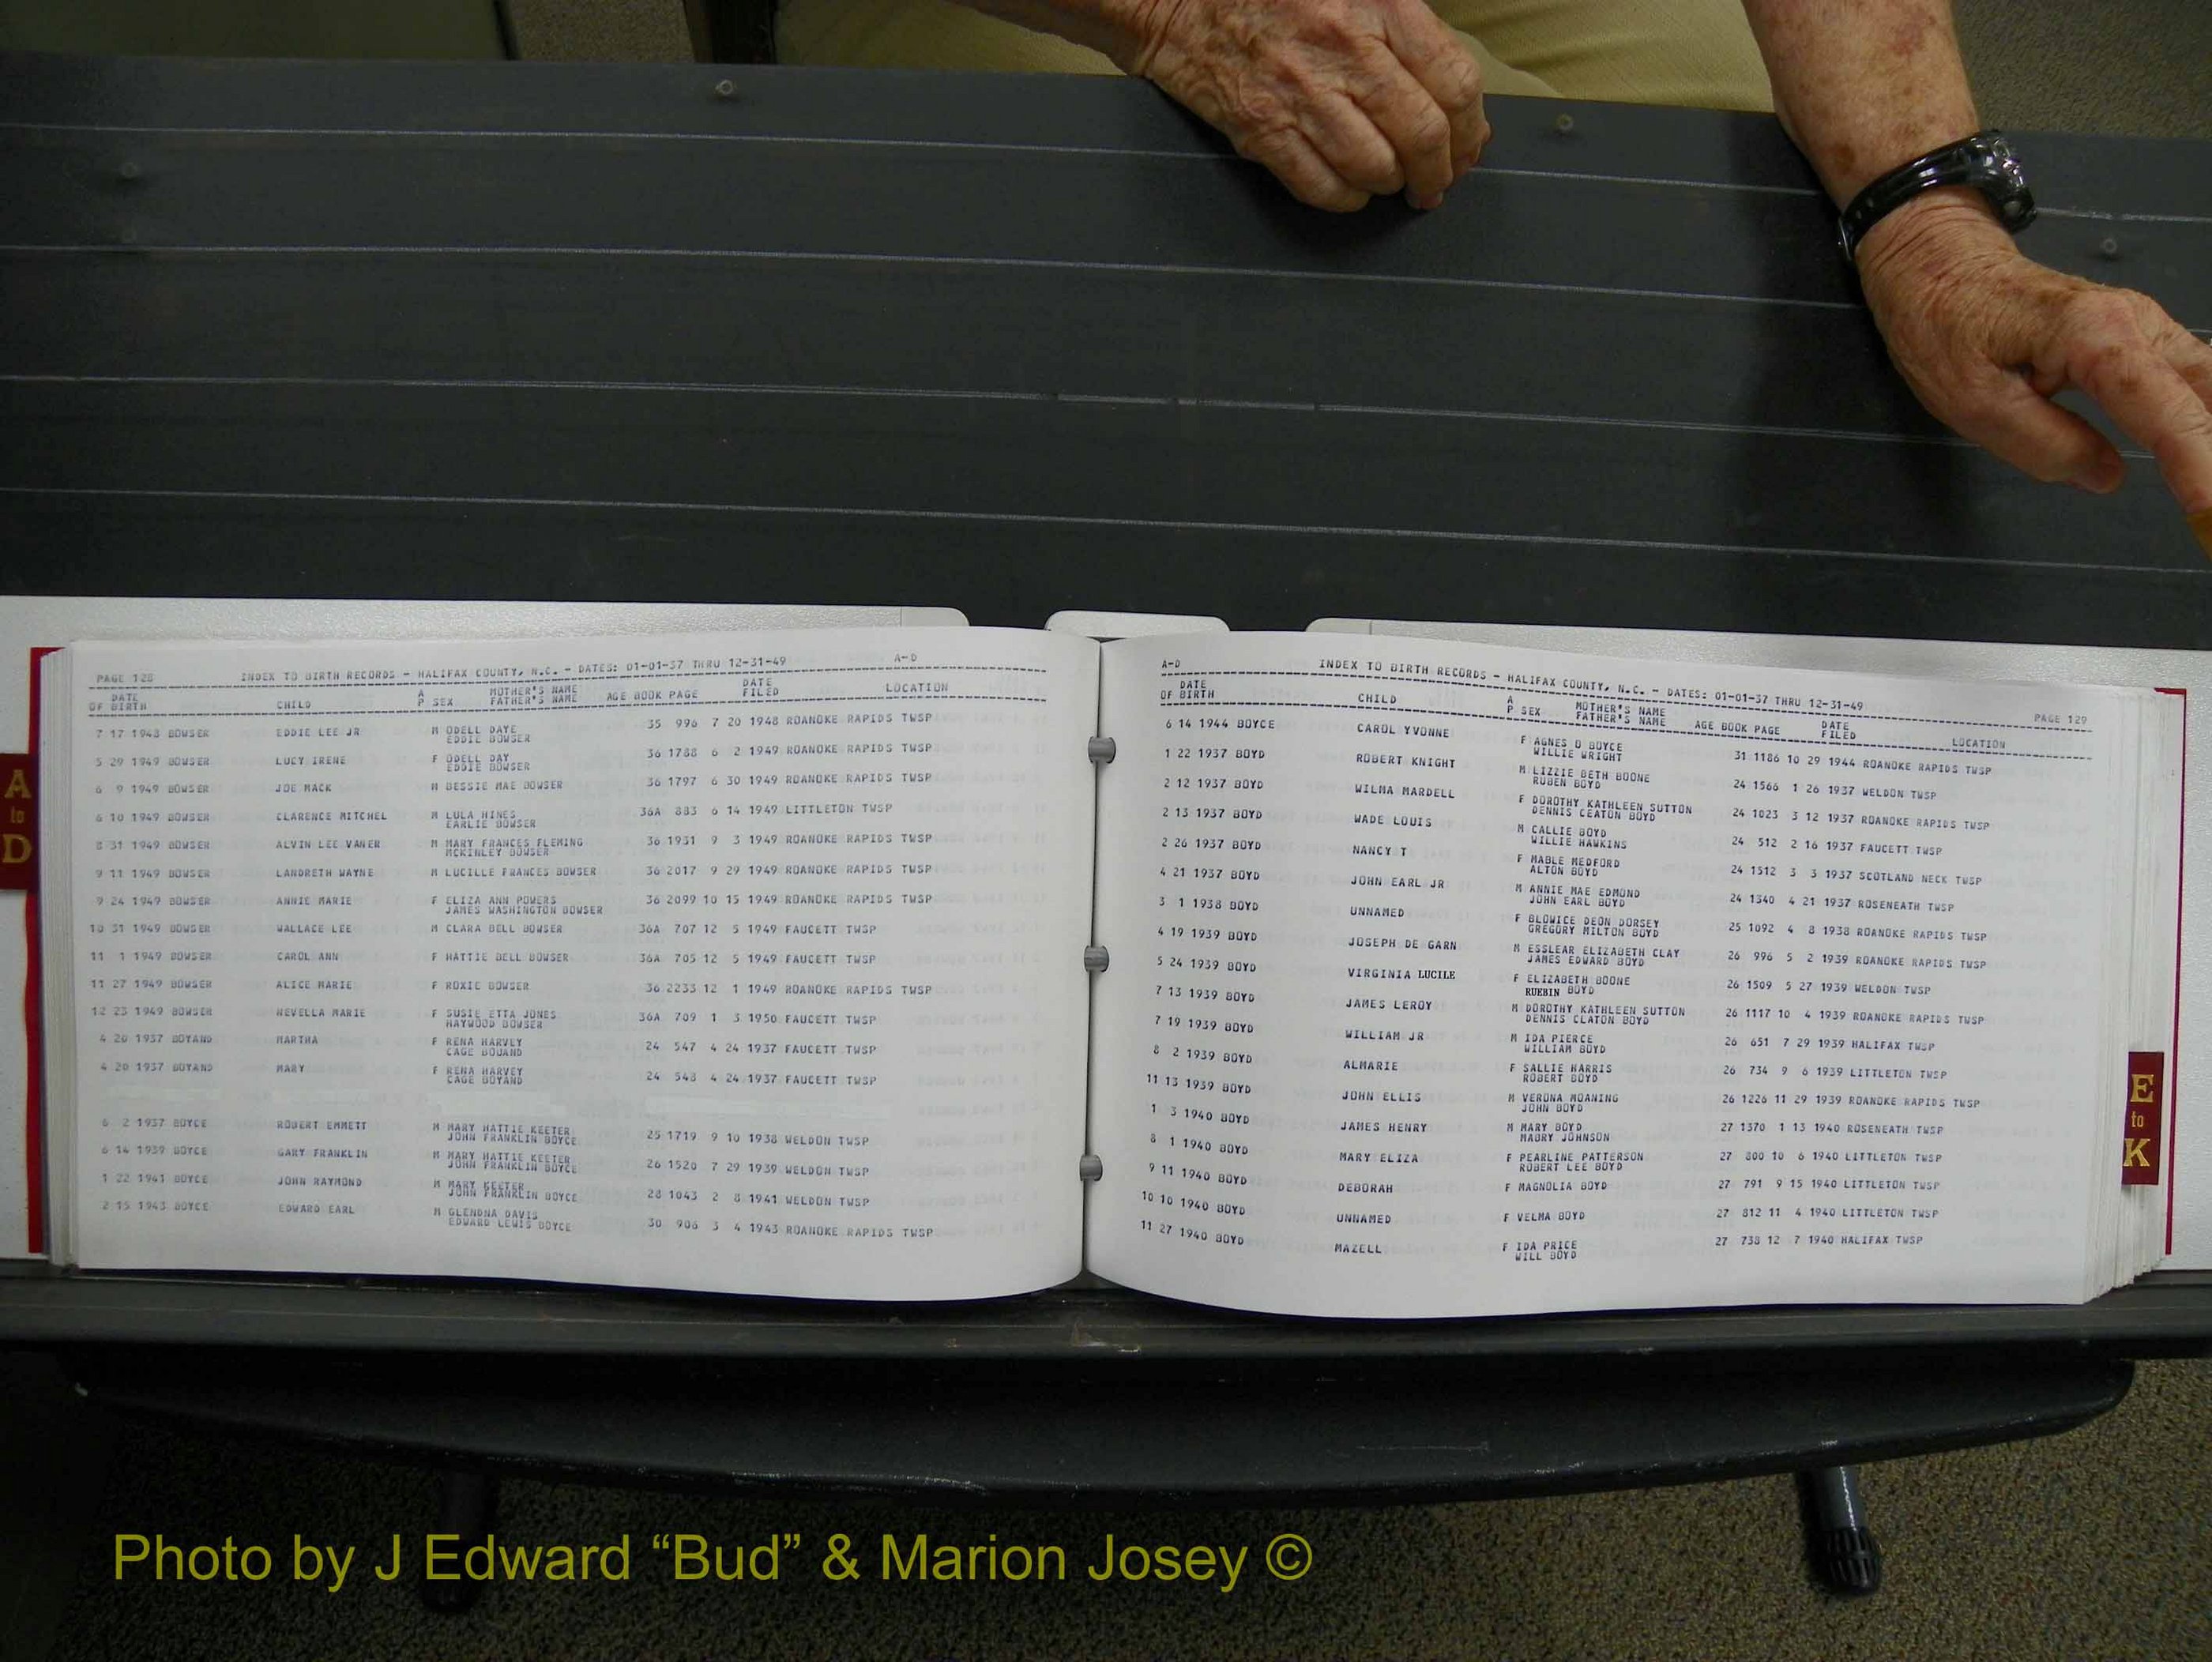 PAGE 128 INDEX TO BIRTH RECORDS - HALIFAX COUNTY, N.C. - DATES: 01-01-37 THRU 12-31-49 A-D
DATE OF BIRTH CHILD A P SEX MOTHER'S NAME FATHER'S NAME AGE BOOK PAGE DATE FILED LOCATION
7 17 1948 BOWSER EDDIE LEE JR M ODELL DAYE 35 996 7 20 1948 ROANOKE RAPIDS TWSP
EDDIE BOWSER
5 29 1949 BOWSER LUCY IRENE F ODELL DAY 36 1788 6 2 1949 ROANOKE RAPIDS TWSP
EDDIE BOWSER
6 9 1949 BOWSER JOE MACK M BESSIE MAE BOWSER 36 1797 6 30 1949 ROANOKE RAPIDS TWSP
6 10 1949 BOWSER CLARENCE MITCHEL M LULA HINES 36A 883 6 14 1949 LITTLETON TWSP
EARLIE BOWSER
8 31 1949 BOWSER ALVIN LEE VANER M MARY FRANCES FLEMING 36 1931 9 3 1949 ROANOKE RAPIDS TWSP
MCKINLEY BOWSER
9 11 1949 BOWSER LANDRETH WAYNE M LUCILLE FRANCES BOWSER 36 2017 9 29 1949 ROANOKE RAPIDS TWSP
9 24 1949 BOWSER ANNIE MARIE F ELIZA ANN POWERS 36 2099 10 15 1949 ROANOKE RAPIDS TWSP
JAMES WASHINGTON BOWSER
10 31 1949 BOWSER WALLACE LEE M CLARA BELL BOWSER 36A 707 12 5 1949 FAUCETT TWSP
11 1 1949 BOWSER CAROL ANN F HATTIE BELL BOWSER 36A 705 12 5 1949 FAUCETT TWSP
11 27 1949 BOWSER ALICE MARIE F ROXIE BOWSER 36 2233 12 1 1949 ROANOKE RAPIDS TWSP
12 23 1949 BOWSER NEVELLA MARIE F SUSIE ETTA JONES 36A 709 1 3 1950 FAUCETT TWSP
HAYWOOD BOWSER
4 20 1937 BOYAND MARTHA F RENA HARVEY 24 547 4 24 1937 FAUCETT TWSP
CAGE BOUAND
4 20 1937 BOYAND MARY F RENA HARVEY 24 548 4 24 1937 FAUCETT TWSP
CAGE BOYAND
6 2 1937 BOYCE ROBERT EMMETT M MARY HATTIE KEETER 25 1719 9 10 1938 WELDON TWSP
JOHN FRANKLIN BOYCE
6 14 1939 BOYCE GARY FRANKLIN M MARY HATTIE KEETER 26 1520 7 29 1939 WELDON TWSP
JOHN FRANKLIN BOYCE
1 22 1941 BOYCE JOHN RAYMOND M MARY KEETER 28 1043 2 8 1941 WELDON TWSP
JOHN FRANKLIN BOYCE
2 15 1943 BOYCE EDWARD EARL M GLENDNA DAVIS 30 906 3 4 1943 ROANOKE RAPIDS TWSP
EDWARD LEWIS BOYCE
A-D INDEX TO BIRTH RECORDS - HALIFAX COUNTY, N.C. - DATES: 01-01-37 THRU 12-31-49 PAGE 129
DATE OF BIRTH CHILD A P SEX MOTHER'S NAME FATHER'S NAME AGE BOOK PAGE DATE FILED LOCATION
6 14 1944 BOYCE CAROL YVONNE F AGNES O BOYCE 31 1186 10 29 1944 ROANOKE RAPIDS TWSP
WILLIE WRIGHT
1 22 1937 BOYD ROBERT KNIGHT M LIZZIE BETH BOONE 24 1566 1 26 1937 WELDON TWSP
RUBEN BOYD
2 12 1937 BOYD WILMA MARDELL F DOROTHY KATHLEEN SUTTON 24 1023 3 12 1937 ROANOKE RAPIDS TWSP
DENNIS CEATON BOYD
2 13 1937 BOYD WADE LOUIS M CALLIE BOYD 24 512 2 16 1937 FAUCETT TWSP
WILLIE HAWKINS
2 26 1937 BOYD NANCY T F MABLE MEDFORD 24 1512 3 3 1937 SCOTLAND NECK TWSP
ALTON BOYD
4 21 1937 BOYD JOHN EARL JR M ANNIE MAE EDMOND 24 1340 4 21 1937 ROSENEATH TWSP
JOHN EARL BOYD
3 1 1938 BOYD UNNAMED F BLOWICE DEON DORSEY 25 1092 4 8 1938 ROANOKE RAPIDS TWSP
GREGORY MILTON BOYD
4 19 1939 BOYD JOSEPH DE GARN M ESSLEAR ELIZABETH CLAY 26 996 5 2 1939 ROANOKE RAPIDS TWSP
JAMES EDWARD BOYD
5 24 1939 BOYD VIRGINIA LUCILE F ELIZABETH BOONE 26 1509 5 27 1939 WELDON TWSP
RUEBIN BOYD
7 13 1939 BOYD JAMES LEROY M DOROTHY KATHLEEN SUTTON 26 1117 10 4 1939 ROANOKE RAPIDS TWSP
DENNIS CLATON BOYD
7 19 1939 BOYD WILLIAM JR M IDA PIERCE 26 651 7 29 1939 HALIFAX TWSP
WILLIAM BOYD
8 2 1939 BOYD ALMARIE F SALLIE HARRIS 26 734 9 6 1939 LITTLETON TWSP
ROBERT BOYD
11 13 1939 BOYD JOHN ELLIS M VERONA MOANING 26 1226 11 29 1939 ROANOKE RAPIDS TWSP
JOHN BOYD
1 3 1940 BOYD JAMES HENRY M MARY BOYD 27 1370 1 13 1940 ROSENEATH TWSP
MABRY JOHNSON
8 1 1940 BOYD MARY ELIZA F PEARLINE PATTERSON 27 800 10 6 1940 LITTLETON TWSP
ROBERT LEE BOYD
9 11 1940 BOYD DEBORAH F MAGNOLIA BOYD 27 791 9 15 1940 LITTLETON TWSP
10 10 1940 BOYD UNNAMED F VELMA BOYD 27 812 11 4 1940 LITTLETON TWSP
11 27 1940 BOYD MAZELL F IDA PRICE 27 738 12 7 1940 HALIFAX TWSP
WILL BOYD
A
to
D
E
to
K
Photo by J Edward “Bud” & Marion Josey ©